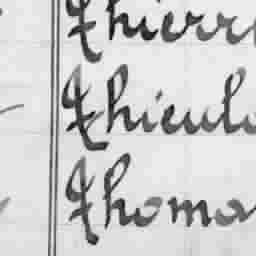 Thierr
Thieulo
Thomas